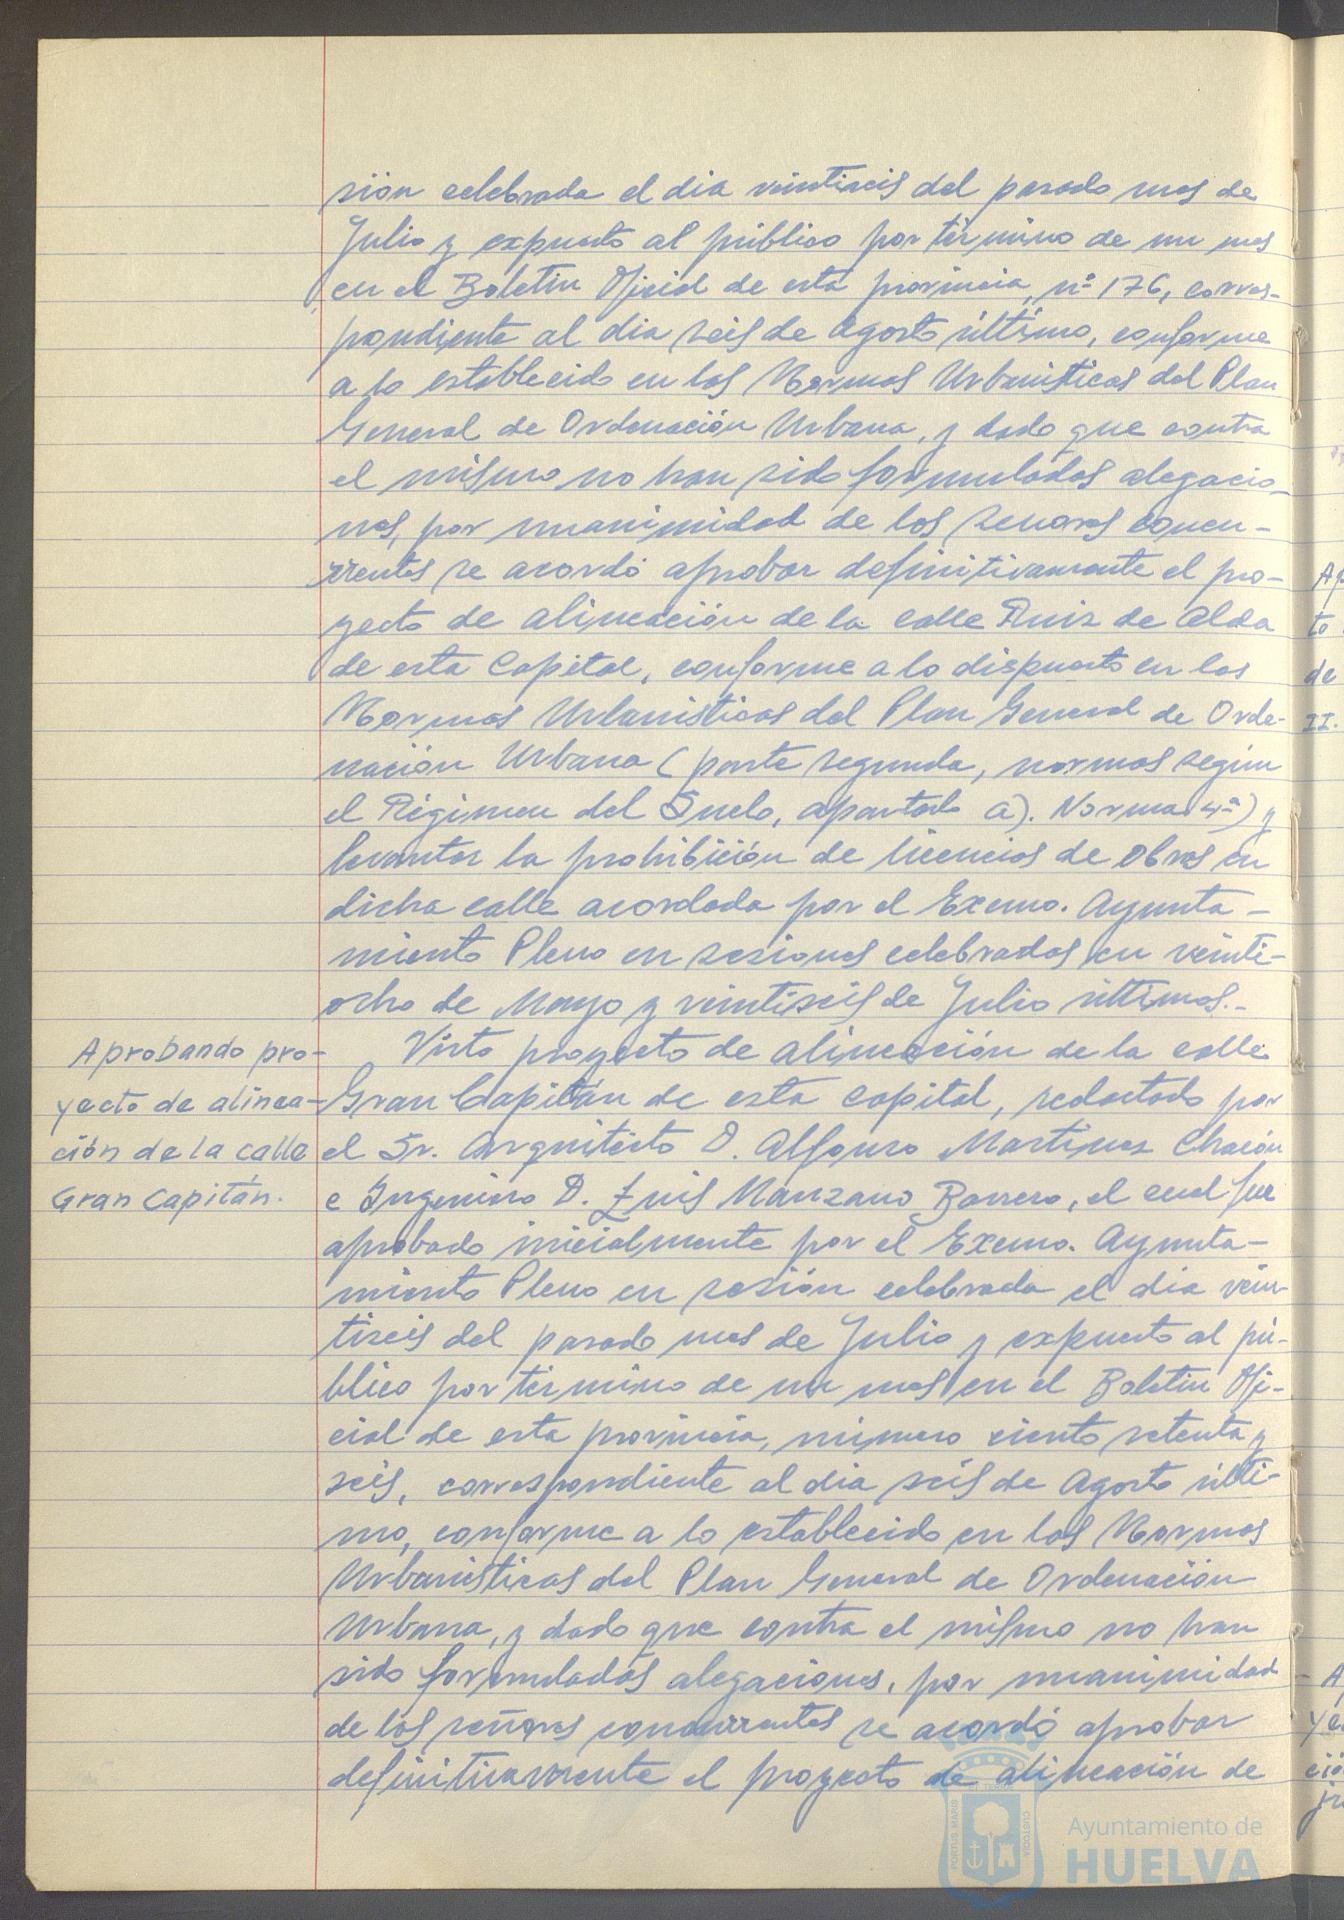 sión celebrada el dia veintiseis del pasado mes de
Julio y expuesto al público por término de un mes
en el Boletin Oficial de esta provincia, nº 176, corres-
pondiente al dia seis de Agosto último, conforme
a lo establecido en las Normas Urbanisticas del Plan
General de Ordenación Urbana, y dado que contra
el mismo no han sido formuladas alegacio-
nes, por unanimidad de los señores concu-
rrentes se acordó aprobar definitivamente el pro-
yecto de alineación de la calle Ruiz de Alda
de esta Capital, conforme a lo dispuesto en las
Normas Urbanisticas del Plan General de Orde-
nación Urbana (parte segunda, normas según
el Régimen del Suelo, apartado a). Norma 4ª) y
levantar la prohibición de licencias de obras en
dicha calle acordada por el Excmo. Ayunta-
miento Pleno en sesiones celebradas en veinti-
ocho de Mayo y veintiseis de Julio últimos.-
Aprobando pro-
yecto de alinea-
ción de la calle
Gran Capitán.
Visto proyecto de alineación de la calle
Gran Capitán de esta capital, redactado por
el Sr. Arquitecto D. Alfonso Martinez Chacón
e Ingeniero D. Luis Manzano Borrero, el cual fue
aprobado inicialmente por el Excmo. Ayunta-
miento Pleno en sesión celebrada el dia vein-
tiseis del pasado mes de Julio y expuesto al pú-
blico por término de un mes en el Boletin Ofi-
cial de esta provincia, número ciento setenta y
seis, correspondiente al dia seis de Agosto últi-
mo, conforme a lo establecido en las Normas
Urbanisticas del Plan General de Ordenación
Urbana, y dado que contra el mismo no han
sido formuladas alegaciones, por unanimidad
de los señores concurrentes se acordó aprobar
definitivamente el proyecto de alineación de
to
de
II.
PORTUS MARIS
ET TERRAE
CUSTODIA
Ayuntamiento de
HUELVA